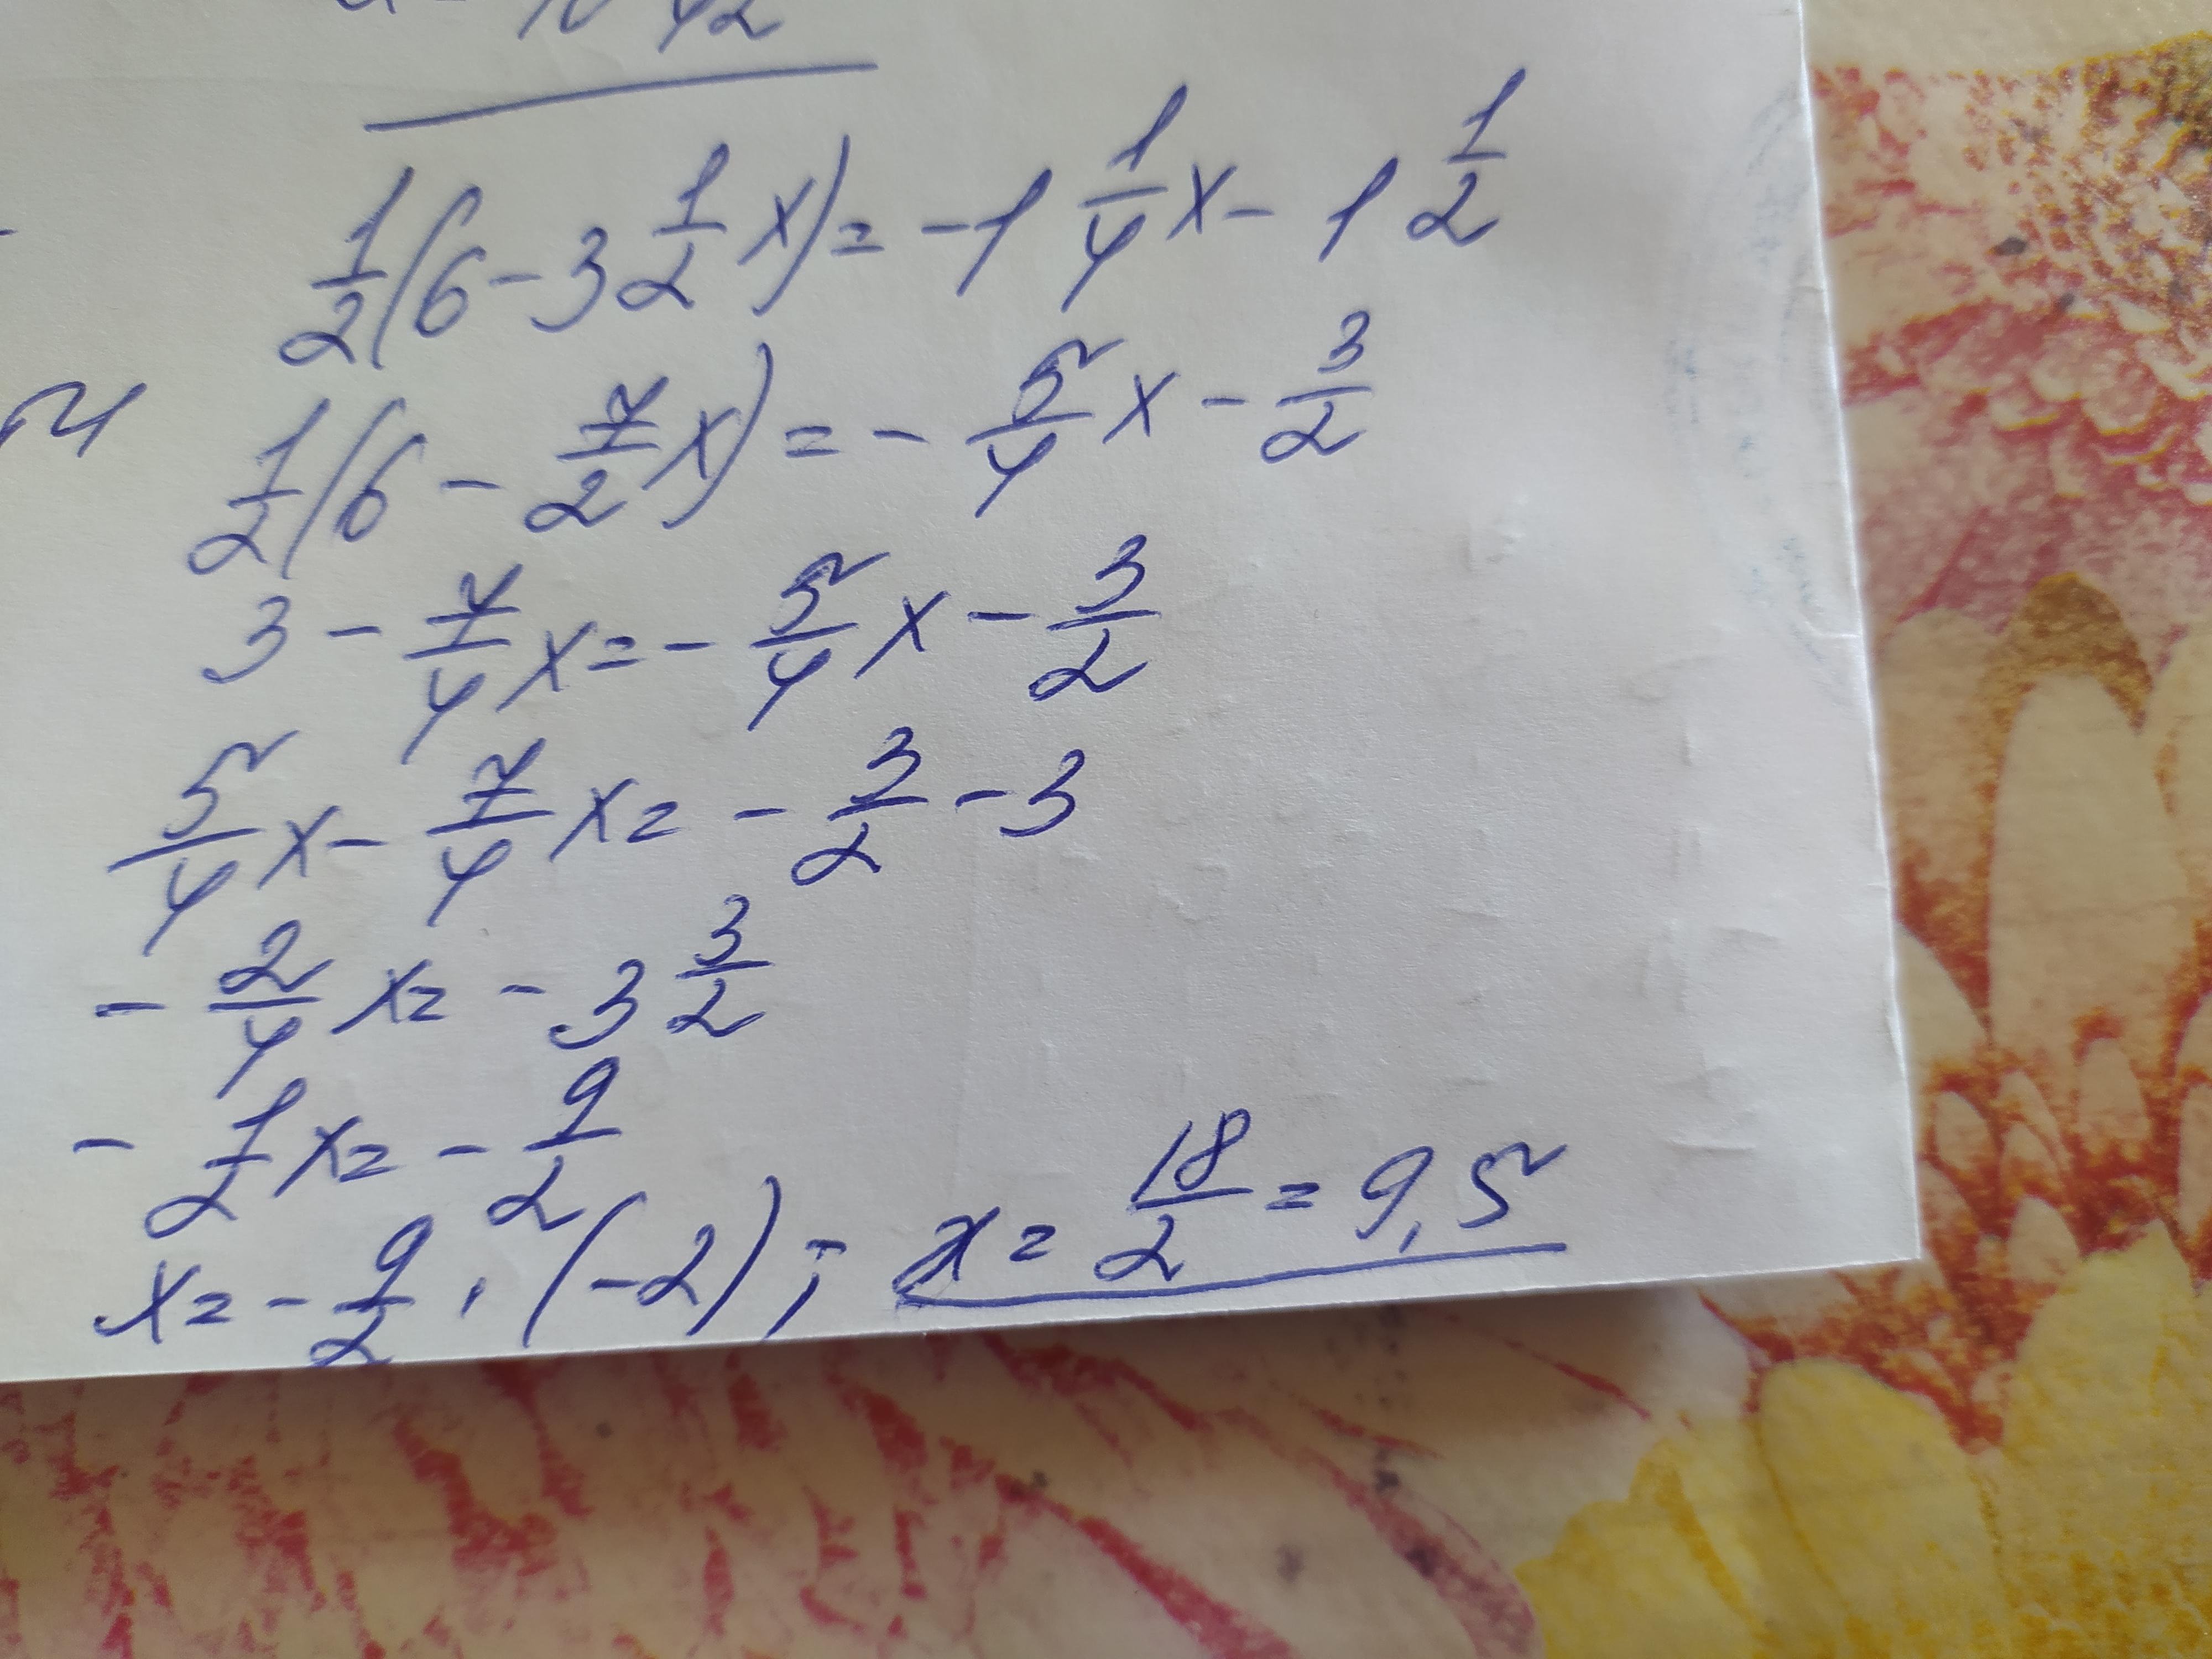 42
1/2(6-3 1/2 x)= -1 1/4 x- 1 1/2
1/2(6 - 7/2 x) = - 5/4 x - 3/2
3 - 7/4 x = - 5/4 x - 3/2
5/4 x - 7/4 x = - 3/2 - 3
- 2/4 x = - 3 3/2
- 1/2 x = - 9/2
x = - 9/2 · (-2) ; x = 18/2 = 9,5